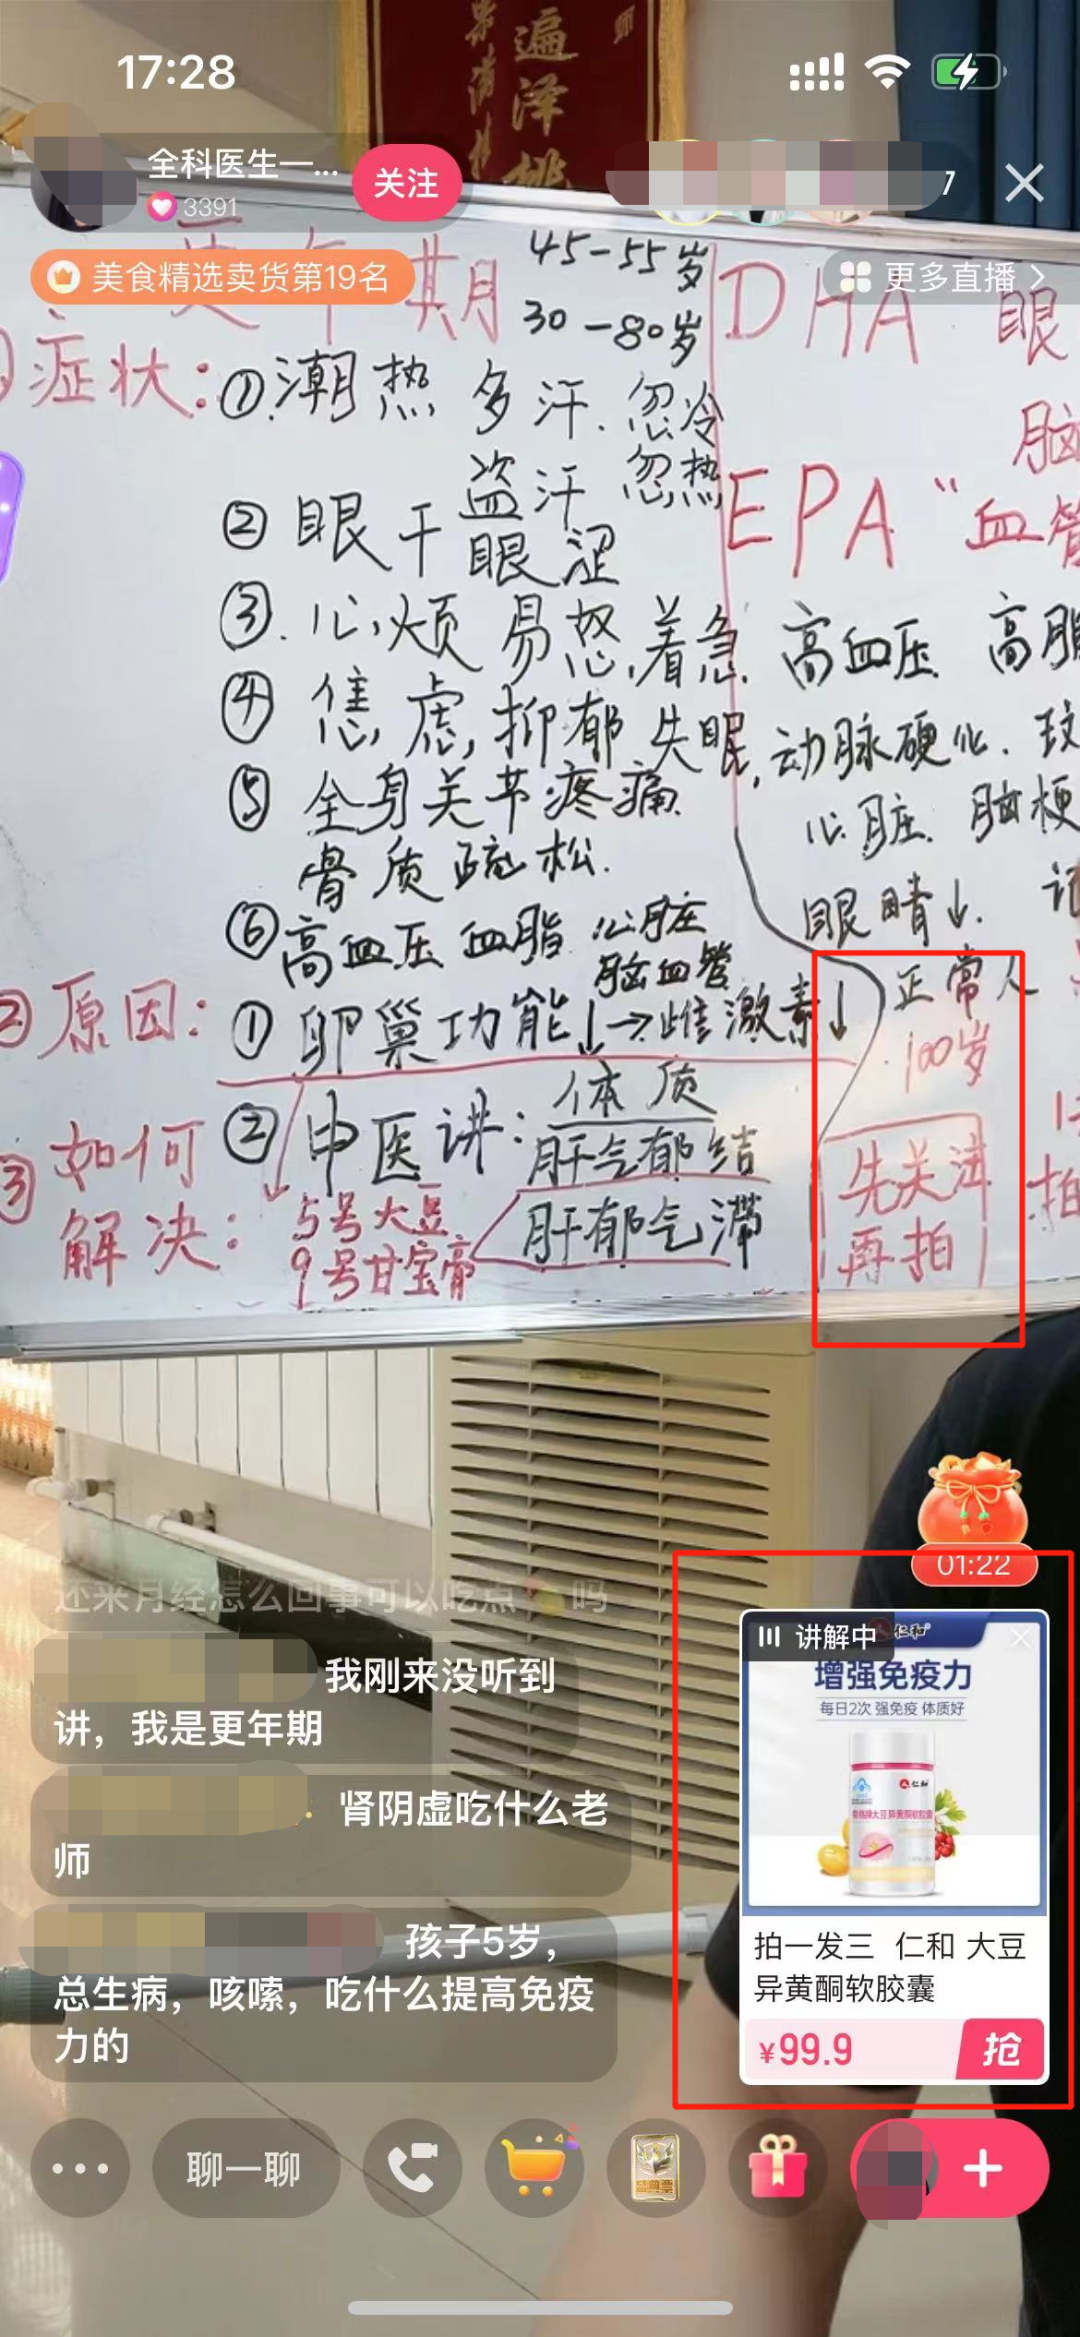 遍
泽
17:28
全科医生一...
3391
关注
7
美食精选卖货第19名
更多直播
更年期
45-55岁
30-80岁
症状:
①潮热 多汗.忽冷
盗汗 忽热
②眼干
眼涩
③.心烦 易怒,着急.
④焦虑,抑郁 失眠,
⑤全身关节疼痛.
骨质疏松.
⑥高血压 血脂 心脏
脑血管
②原因:
①卵巢功能↓→雌激素↓
②中医讲:体质
肝气郁结
肝郁气滞
③如何
解决:
5号大豆
9号甘宝膏
DHA 眼
脑
EPA“血管
高血压 高脂
动脉硬化.
心脏.脑梗
眼睛↓.
正常人
100岁
先关注
再拍
拍
01:22
还来月经怎么回事可以吃点 吗
我刚来没听到
讲，我是更年期
肾阴虚吃什么老
师
孩子5岁，
总生病，咳嗦，吃什么提高免疫
力的
讲解中
仁和
增强免疫力
每日2次 强免疫 体质好
仁和
大豆异黄酮软胶囊
拍一发三 仁和 大豆
异黄酮软胶囊
¥99.9
抢
聊一聊